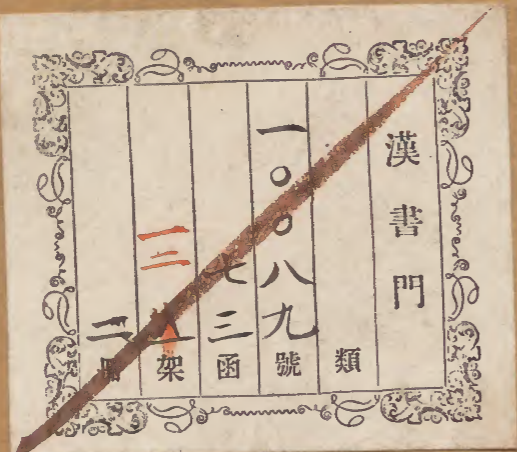 漢書門
類
一〇〇八九號
七三函
一三架
二冊